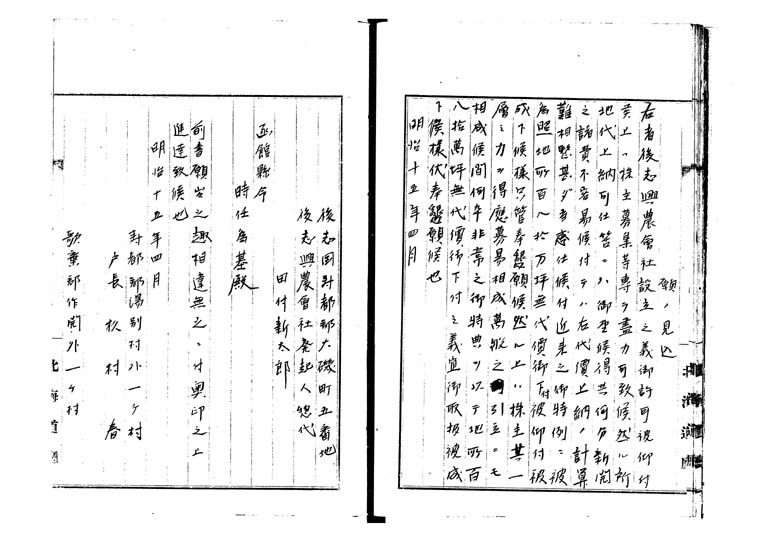 願ノ見込
右者後志興農會社設立之義御許可被仰付
候上ハ株主募集等専ラ盡力可致候然ルニ所
地代上納可仕筈ニハ御坐候得共何分新開
之諸費不容易候付テハ右代價上納ノ計算
難相整甚ダ者惑仕候付近来之御特例ニ被
為照地所百八拾万坪無代價御下付被仰付被
成下候様只管奉懇願候然ル上ハ株主其一
層之力ヲ得應募易相成萬般之引立ニモ
相成候間何卒非常之御特典ヲ以テ地所百
八拾萬坪無代價御下付之義宜御取扱被成
下候様伏奉懇願候也
明治十五年四月
後志国寿都郡大磯町五番地
後志興農會社発起人惣代
田付新太郎
函館縣令
時任為基殿
前書願出之趣相違無之ニ付奥印之上
進達致候也
明治十五年四月
寿都郡湯別村外一ヶ村
戸長 杉村 春
歌棄郡作開外一ヶ村
北海道